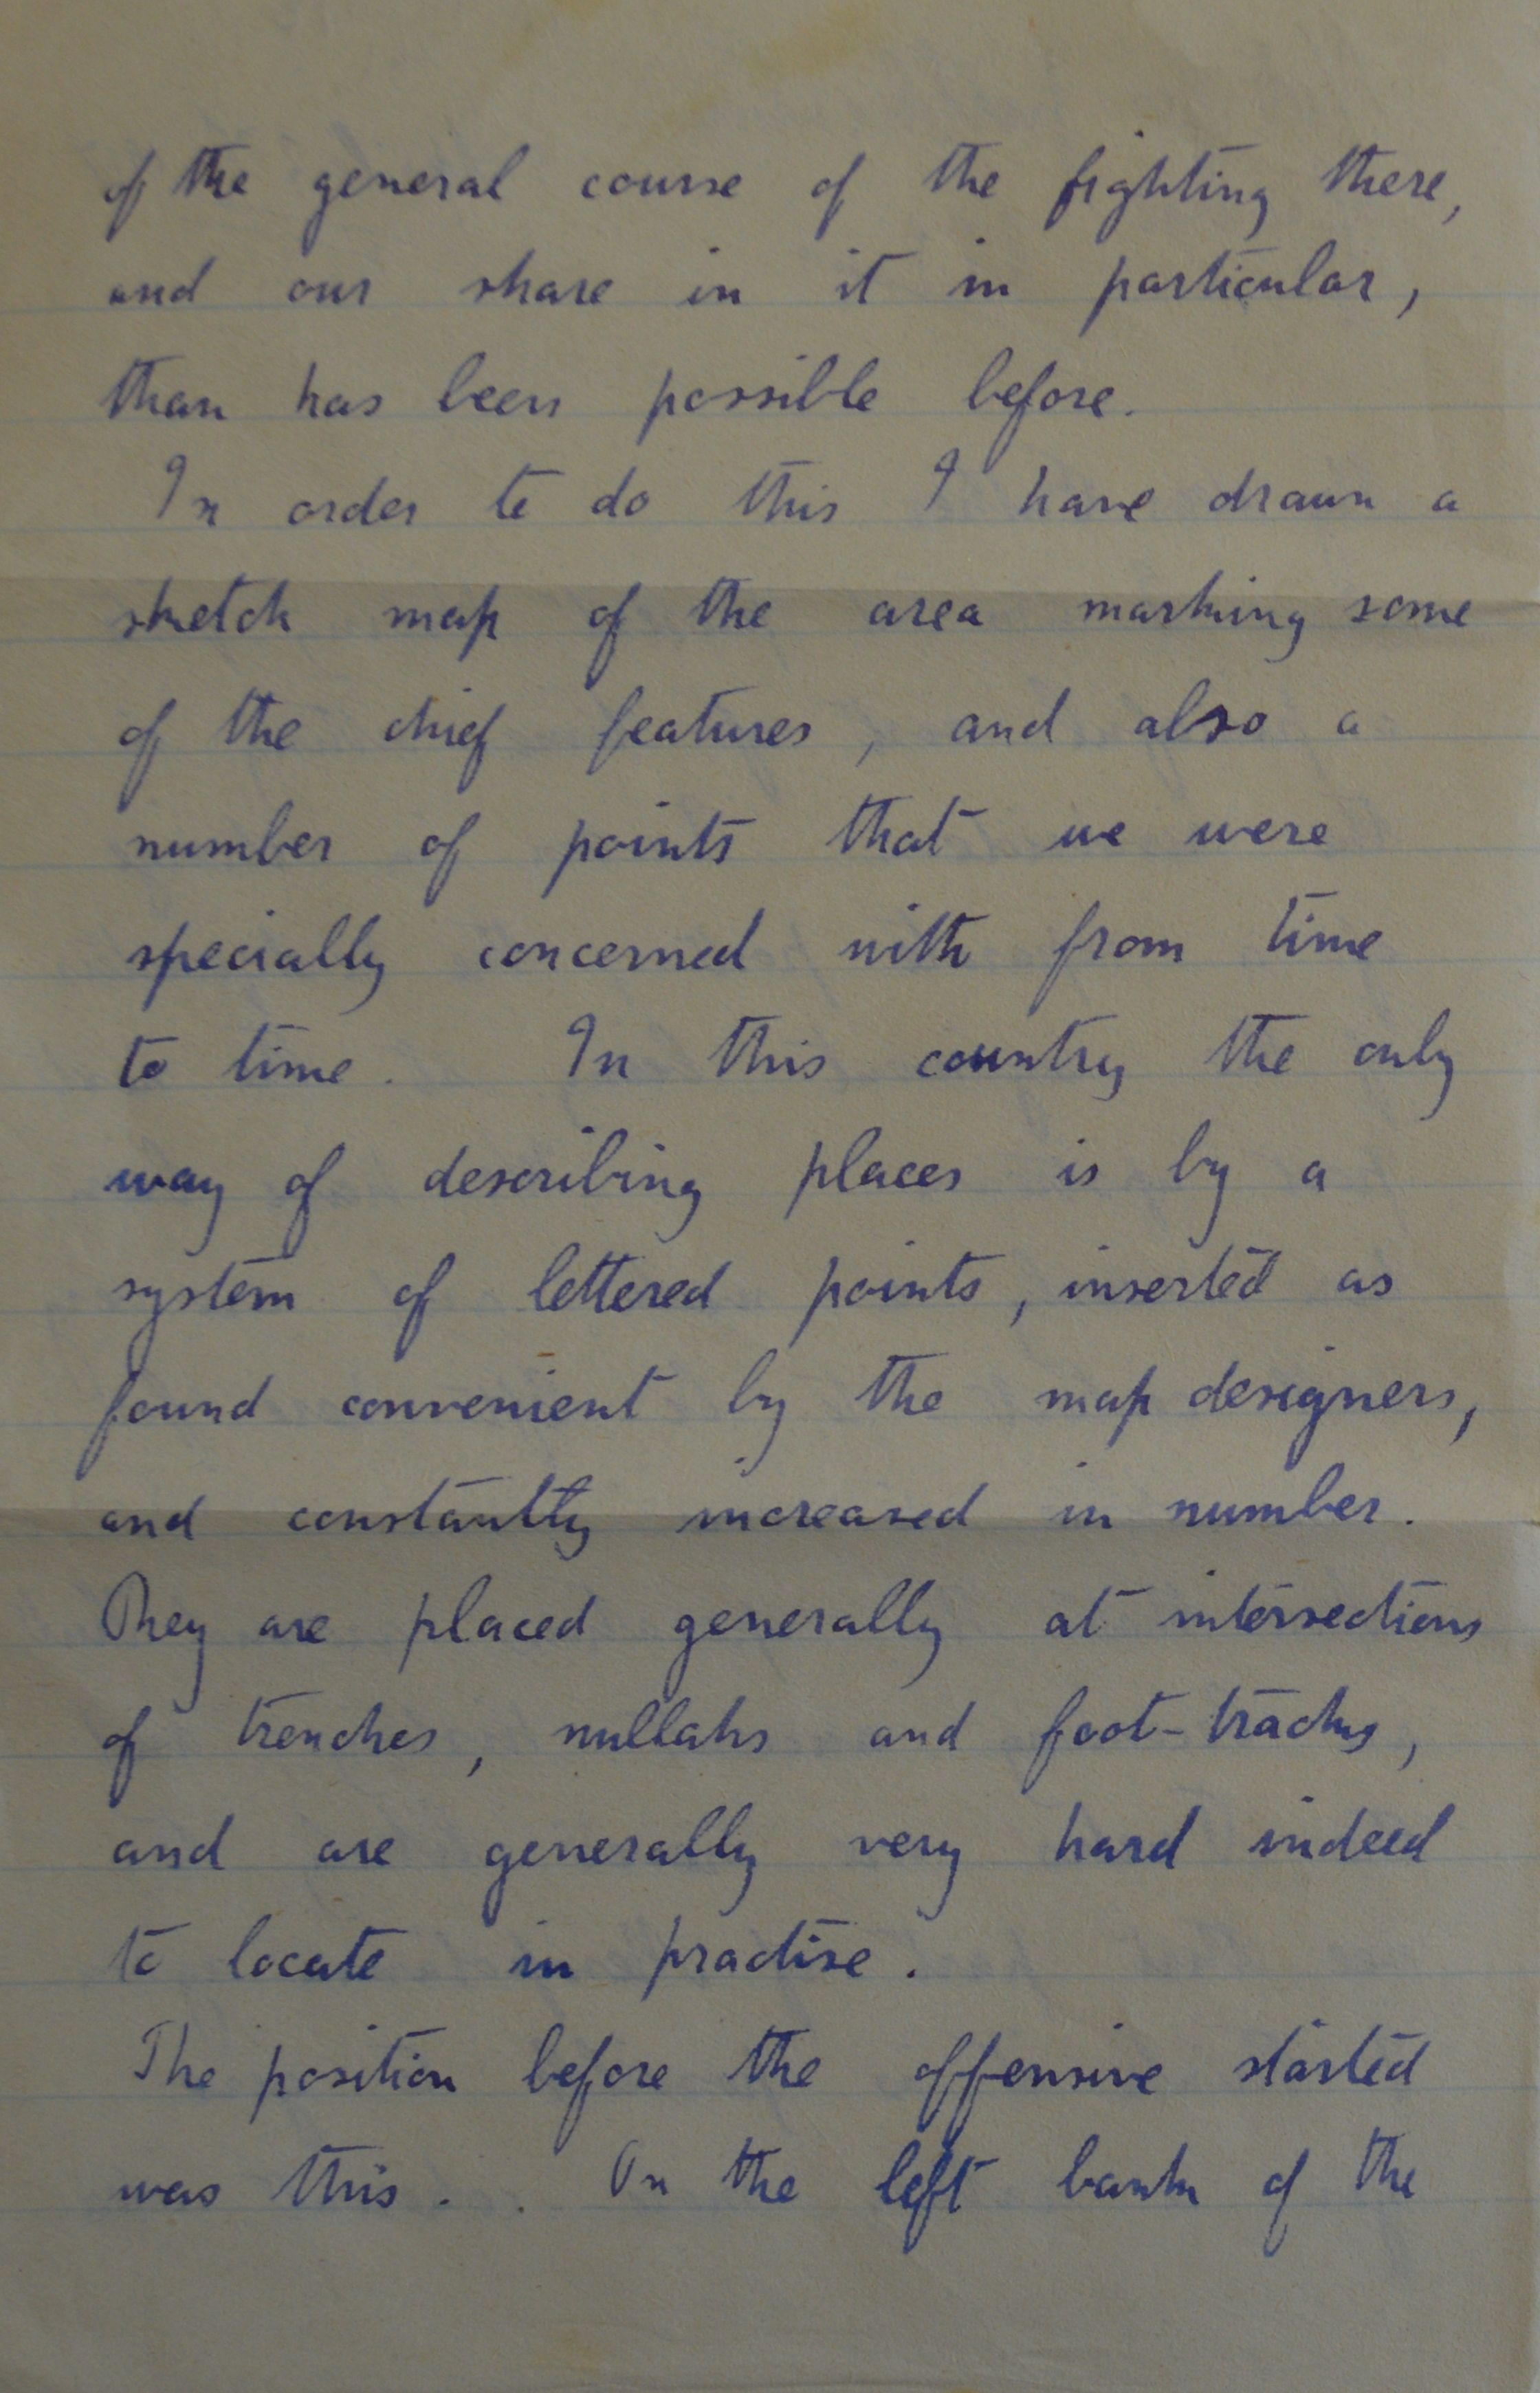 of the general course of the fighting there,
and our share in it in particular,
than has been possible before.
In order to do this I have drawn a
sketch map of the area marking some
of the chief features, and also a
number of points that we were
specially concerned with from time
to time. In this country the only
way of describing places is by a
system of lettered points, inserted as
found convenient by the map designers,
and constantly increased in number.
They are placed generally at intersections
of trenches, nullahs and foot-tracks,
and are generally very hard indeed
to locate in practise.
The position before the offensive started
was this. . On the left bank of the